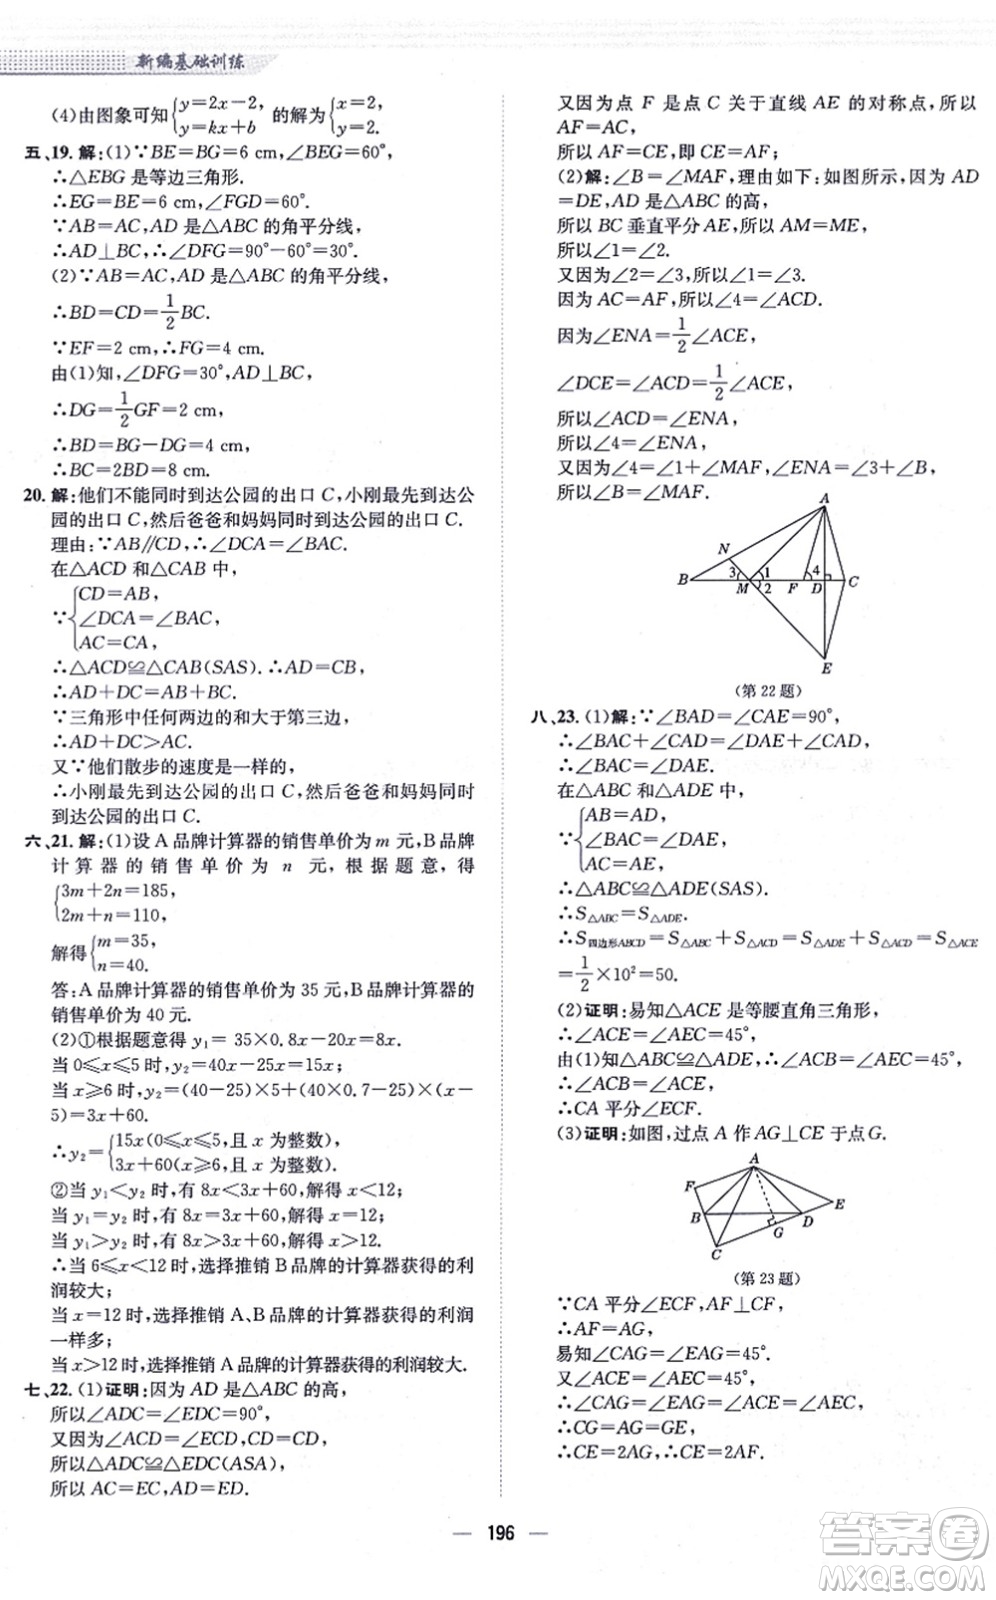 新编基础训练
(4)由图象可知{y=2x-2, y=kx+b 的解为{x=2, y=2.
五、19. 解:(1)∵BE=BG=6 cm,∠BEG=60°,
∴△EBG是等边三角形.
∴EG=BE=6 cm,∠FGD=60°.
∵AB=AC,AD是△ABC的角平分线,
∴AD⊥BC,∴∠DFG=90°-60°=30°.
(2)∵AB=AC,AD是△ABC的角平分线,
∴BD=CD=1/2 BC.
∵EF=2 cm,∴FG=4 cm.
由(1)知,∠DFG=30°,AD⊥BC,
∴DG=1/2 GF=2 cm,
∴BD=BG-DG=4 cm,
∴BC=2BD=8 cm.
20. 解:他们不能同时到达公园的出口C,小刚最先到达公
园的出口C,然后爸爸和妈妈同时到达公园的出口C.
理由:∵AB∥CD,∴∠DCA=∠BAC.
在△ACD和△CAB中,
∵{CD=AB,
∠DCA=∠BAC,
AC=CA,
∴△ACD≌△CAB(SAS).∴AD=CB,
∴AD+DC=AB+BC.
∵三角形中任何两边的和大于第三边,
∴AD+DC>AC.
又∵他们散步的速度是一样的,
∴小刚最先到达公园的出口C,然后爸爸和妈妈同时
到达公园的出口C.
六、21. 解:(1)设A品牌计算器的销售单价为m元,B品牌
计算器的销售单价为n元,根据题意,得
{3m+2n=185,
2m+n=110,
解得{m=35,
n=40.
答:A品牌计算器的销售单价为35元,B品牌计算器的
销售单价为40元.
(2)①根据题意得y₁=35×0.8x-20x=8x.
当0≤x≤5时,y₂=40x-25x=15x;
当x≥6时,y₂=(40-25)×5+(40×0.7-25)×(x-
5)=3x+60.
∴y₂={15x(0≤x≤5,且x为整数),
3x+60(x≥6,且x为整数).
②当y₁<y₂时,有8x<3x+60,解得x<12;
当y₁=y₂时,有8x=3x+60,解得x=12;
当y₁>y₂时,有8x>3x+60,解得x>12.
∴当6≤x<12时,选择推销B品牌的计算器获得的利
润较大;
当x=12时,选择推销A、B品牌的计算器获得的利润
一样多;
当x>12时,选择推销A品牌的计算器获得的利润较大.
七、22. (1)证明:因为AD是△ABC的高,
所以∠ADC=∠EDC=90°,
又因为∠ACD=∠ECD,CD=CD,
所以△ADC≌△EDC(ASA),
所以AC=EC,AD=ED.
又因为点F是点C关于直线AE的对称点,所以
AF=AC,
所以AF=CE,即CE=AF;
(2)解:∠B=∠MAF,理由如下:如图所示,因为AD
=DE,AD是△ABC的高,
所以BC垂直平分AE,所以AM=ME,
所以∠1=∠2.
又因为∠2=∠3,所以∠1=∠3.
因为AC=AF,所以∠4=∠ACD.
因为∠ENA=1/2∠ACE,
∠DCE=∠ACD=1/2∠ACE,
所以∠ACD=∠ENA,
所以∠4=∠ENA,
又因为∠4=∠1+∠MAF,∠ENA=∠3+∠B,
所以∠B=∠MAF.
A
N
B 3 1 4 C
M 2 F D
E
(第22题)
八、23. (1)解:∵∠BAD=∠CAE=90°,
∴∠BAC+∠CAD=∠DAE+∠CAD,
∴∠BAC=∠DAE.
在△ABC和△ADE中,
{AB=AD,
∠BAC=∠DAE,
AC=AE,
∴△ABC≌△ADE(SAS).
∴S△ABC=S△ADE.
∴S四边形ABCD=S△ABC+S△ACD=S△ADE+S△ACD=S△ACE
=1/2×10²=50.
(2)证明:易知△ACE是等腰直角三角形,
∴∠ACE=∠AEC=45°,
由(1)知△ABC≌△ADE,∴∠ACB=∠AEC=45°,
∴∠ACB=∠ACE,
∴CA平分∠ECF.
(3)证明:如图,过点A作AG⊥CE于点G.
A
F
E
B D
G
C
(第23题)
∵CA平分∠ECF,AF⊥CF,
∴AF=AG,
易知∠CAG=∠EAG=45°.
又∠ACE=∠AEC=45°,
∴∠CAG=∠EAG=∠ACE=∠AEC=45°,
∴CG=AG=GE,
∴CE=2AG,∴CE=2AF.
196
答案卷
MXQE.COM